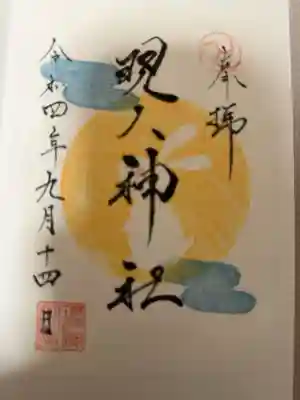 奉拝
現人神社
令和四年九月十四日